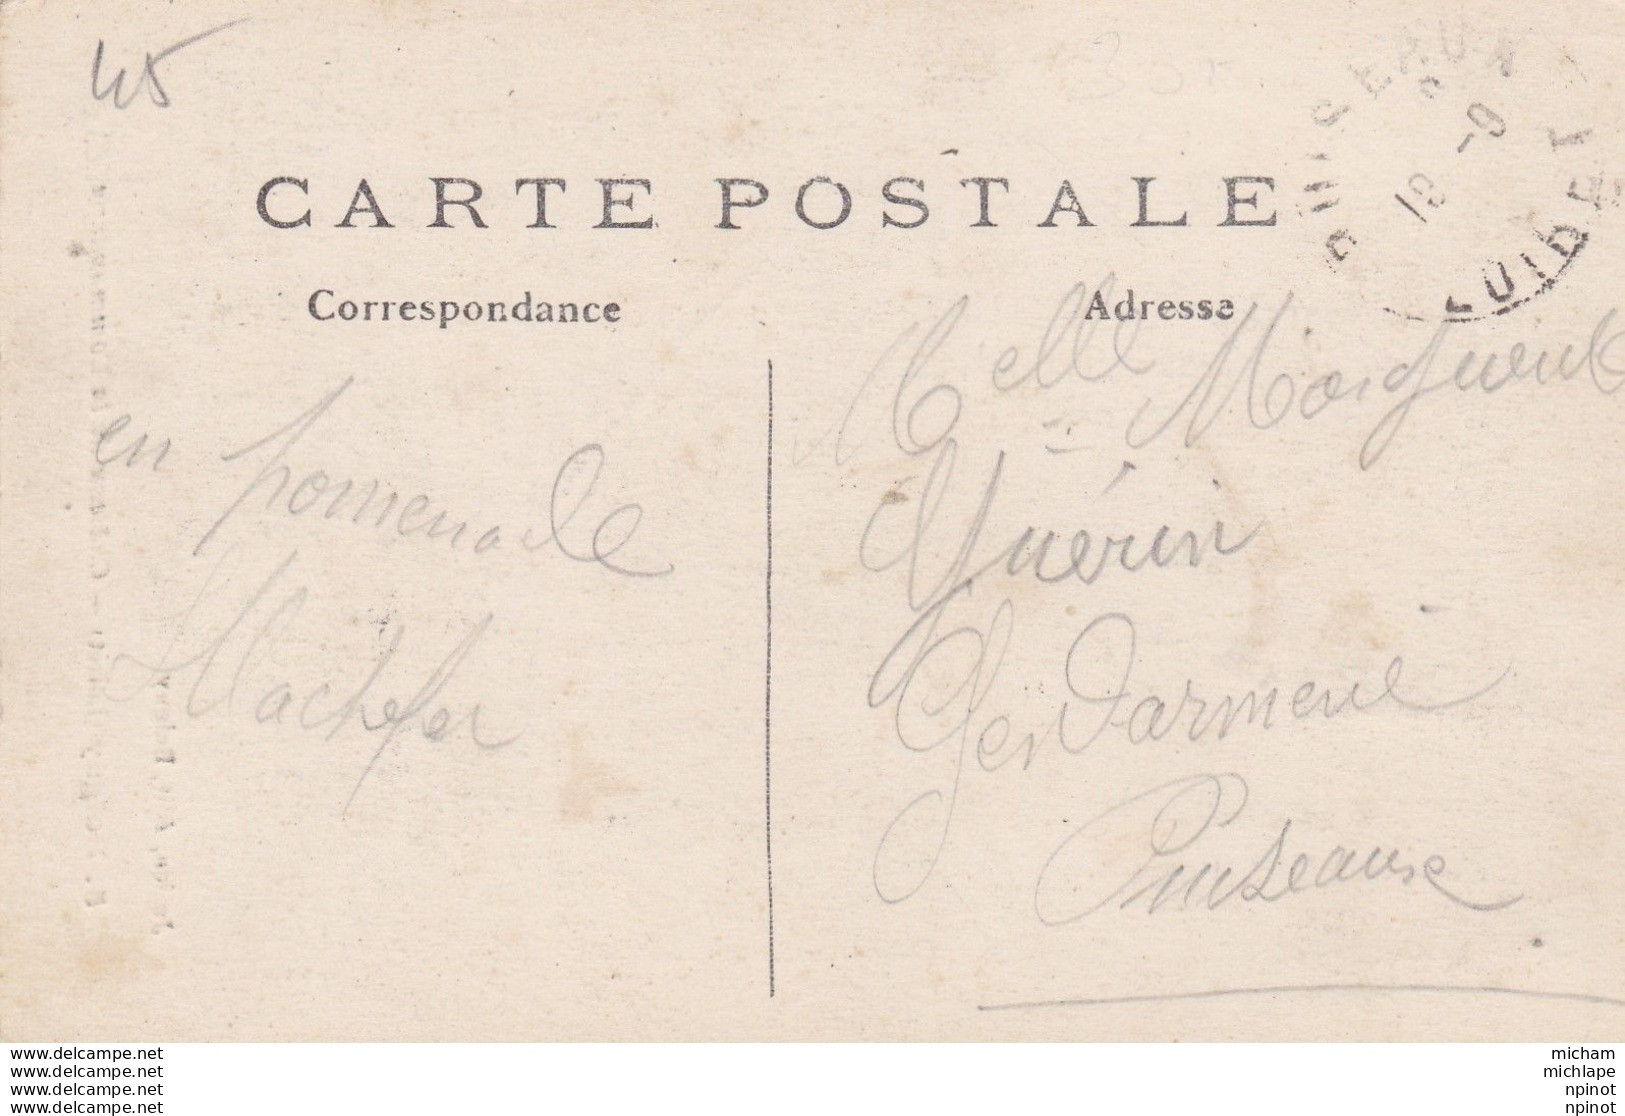 45
PUISEAUX
18 -9
LOIRET
CARTE POSTALE
Correspondance
Adresse
en promenade
Machefer
Melle Marguerite
Guérin
Gendarmerie
Puiseaux
www.delcampe.net
www.delcampe.net
www.delcampe.net
www.delcampe.net
micham
michlape
npinot
npinot